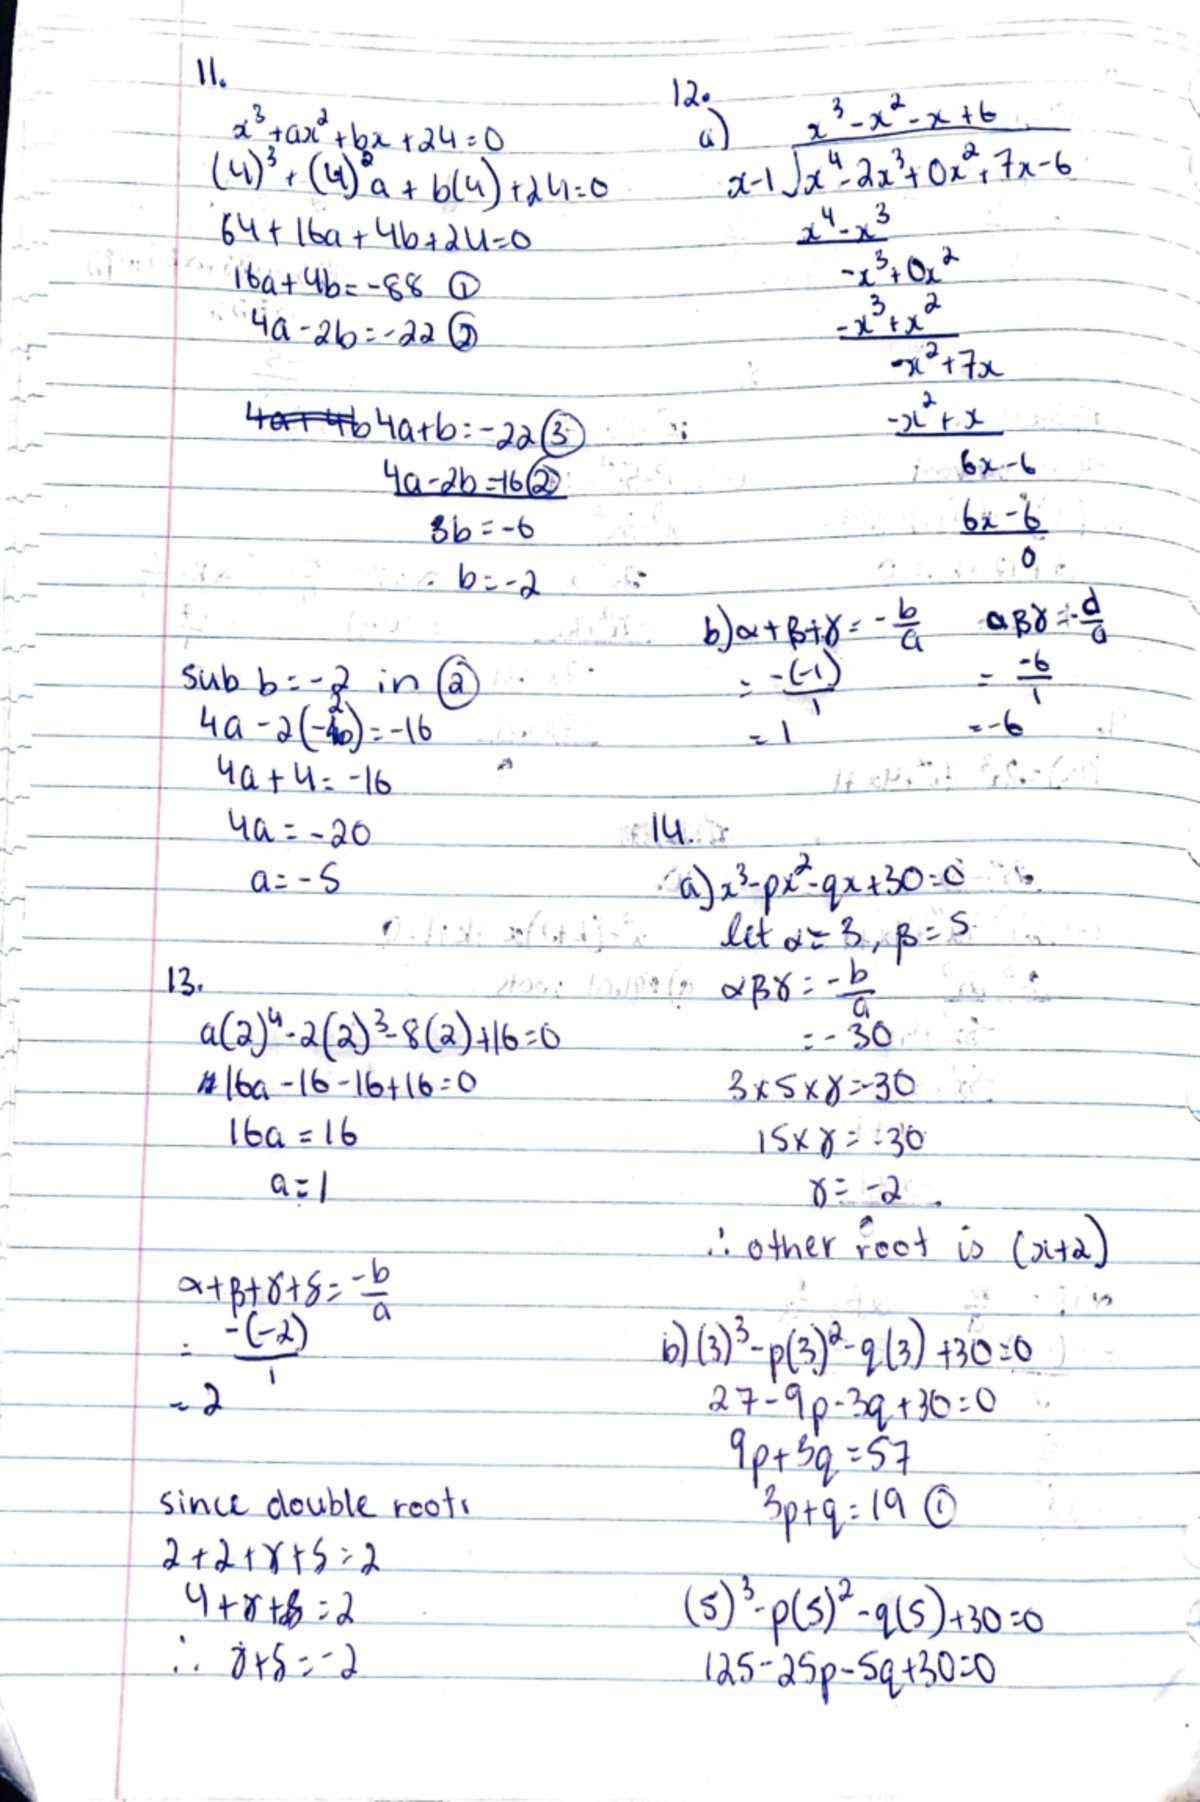 11.
x³+ax²+bx+24=0
(4)³+(4)²a+b(4)+24=0
64+16a+4b+24=0
16a+4b=-88 ①
4a-2b=-22 ②
4a+b=-22 ③
4a-2b=-16 ②
3b=-6
b=-2
sub b=-2 in ②
4a-2(-2)=-16
4a+4=-16
4a=-20
a=-5
13.
a(2)⁴-2(2)³-8(2)+16=0
16a-16-16+16=0
16a=16
a=1
α+β+γ+δ=-b/a
= -(-2)/1
= 2
since double roots
2+2+γ+δ=2
4+γ+δ=2
∴ γ+δ=-2
12.
a) x³-x²-x+6
x-1√x⁴-2x³+0x²+7x-6
x⁴-x³
-x³+0x²
-x³+x²
-x²+7x
-x²+x
6x-6
6x-6
0
b) α+β+γ=-b/a αβγ=-d/a
= -(-1)/1 = -6/1
= 1 =-6
14.
a) x³-px²-qx+30=0
let α=3, β=5
αβγ=-b/a
=-30
3×5×γ=-30
15×γ=-30
γ=-2
∴ other root is (x+2)
b) (3)³-p(3)²-q(3)+30=0
27-9p-3q+30=0
9p+3q=57
3p+q=19 ①
(5)³-p(5)²-q(5)+30=0
125-25p-5q+30=0